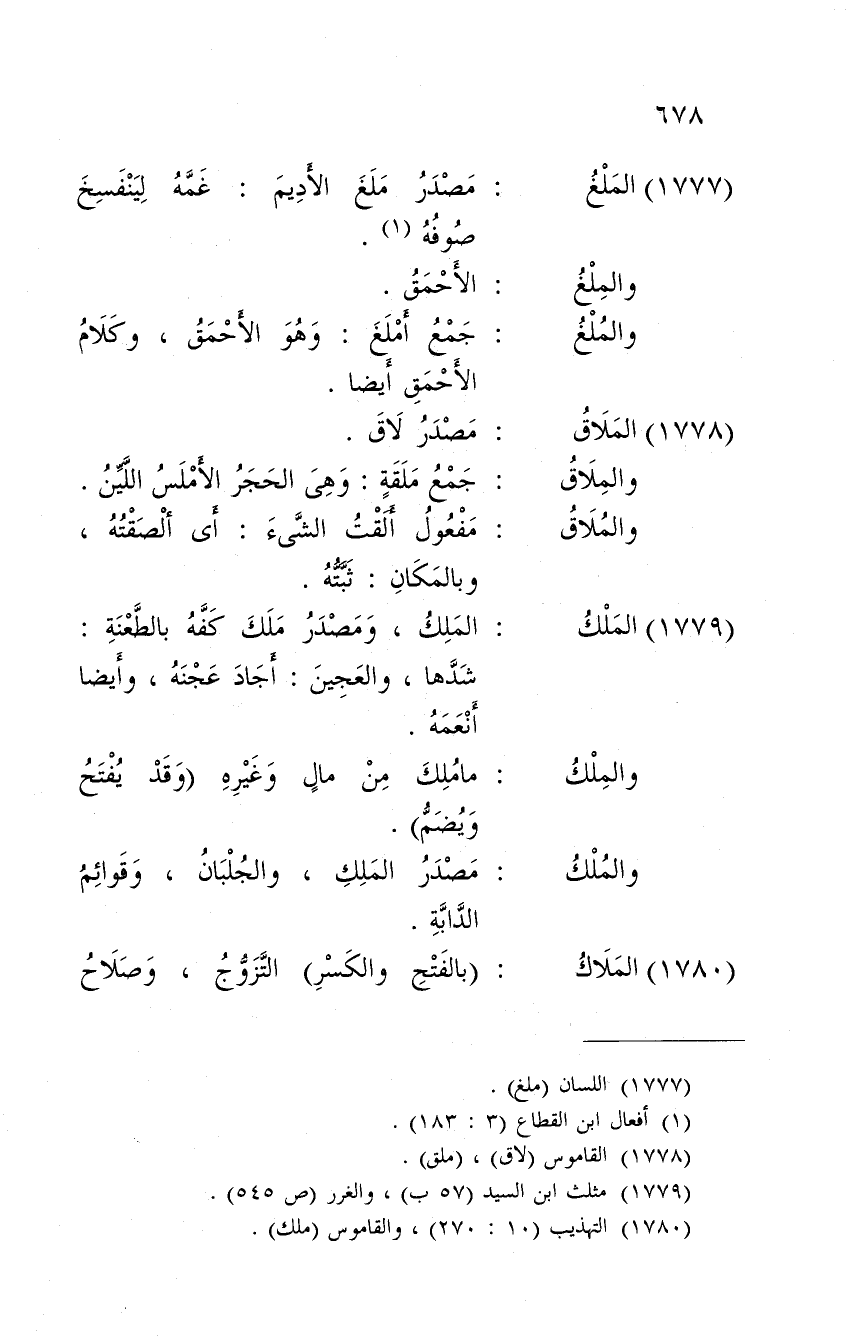 ٦٧٨
(١٧٧٧) المَلْغُ : مَصْدَرُ مَلَغَ الأَدِيمَ : غَمَّهُ لِيَنْفَسِخَ
صُوفُهُ (١) .
والمِلْغُ : الأَحْمَقُ .
والمُلْغُ : جَمْعُ أَمْلَغَ : وَهُوَ الأَحْمَقُ ، وكَلَامُ
الأَحْمَقِ أَيضا .
(١٧٧٨) المَلَاقُ : مَصْدَرُ لَاقَ .
والمِلَاقُ : جَمْعُ مَلَقَةٍ : وَهِىَ الحَجَرُ الأَمْلَسُ اللَّيِّنُ .
والمُلَاقُ : مَفْعُولُ أَلَقْتُ الشَّىءَ : أَى ألْصَقْتُهُ ،
وبالمَكَانِ : ثَبَّتُّهُ .
(١٧٧٩) المَلْكُ : المَلِكُ ، وَمَصْدَرُ مَلَكَ كَفَّهُ بالطَّعْنَةِ :
شَدَّها ، والعَجِينَ : أَجَادَ عَجْنَهُ ، وأَيضا
أَنْعَمَهُ .
والمِلْكُ : مامُلِكَ مِنْ مالٍ وَغَيْرِهِ (وَقَدْ يُفْتَحُ
وَيُضَمُّ) .
والمُلْكُ : مَصْدَرُ المَلِكِ ، والجُلْبَانُ ، وَقَوائِمُ
الدَّابَّةِ .
(١٧٨٠) المَلَاكُ : (بالفَتْحِ والكَسْرِ) التَّزَوُّجُ ، وَصَلَاحُ
(١٧٧٧) اللسان (ملغ) .
(١) أفعال ابن القطاع (٣ : ١٨٣) .
(١٧٧٨) القاموس (لاق) ، (ملق) .
(١٧٧٩) مثلث ابن السيد (٥٧ ب) ، والغرر (ص ٥٤٥) .
(١٧٨٠) التهذيب (١٠ : ٢٧٠) ، والقاموس (ملك) .